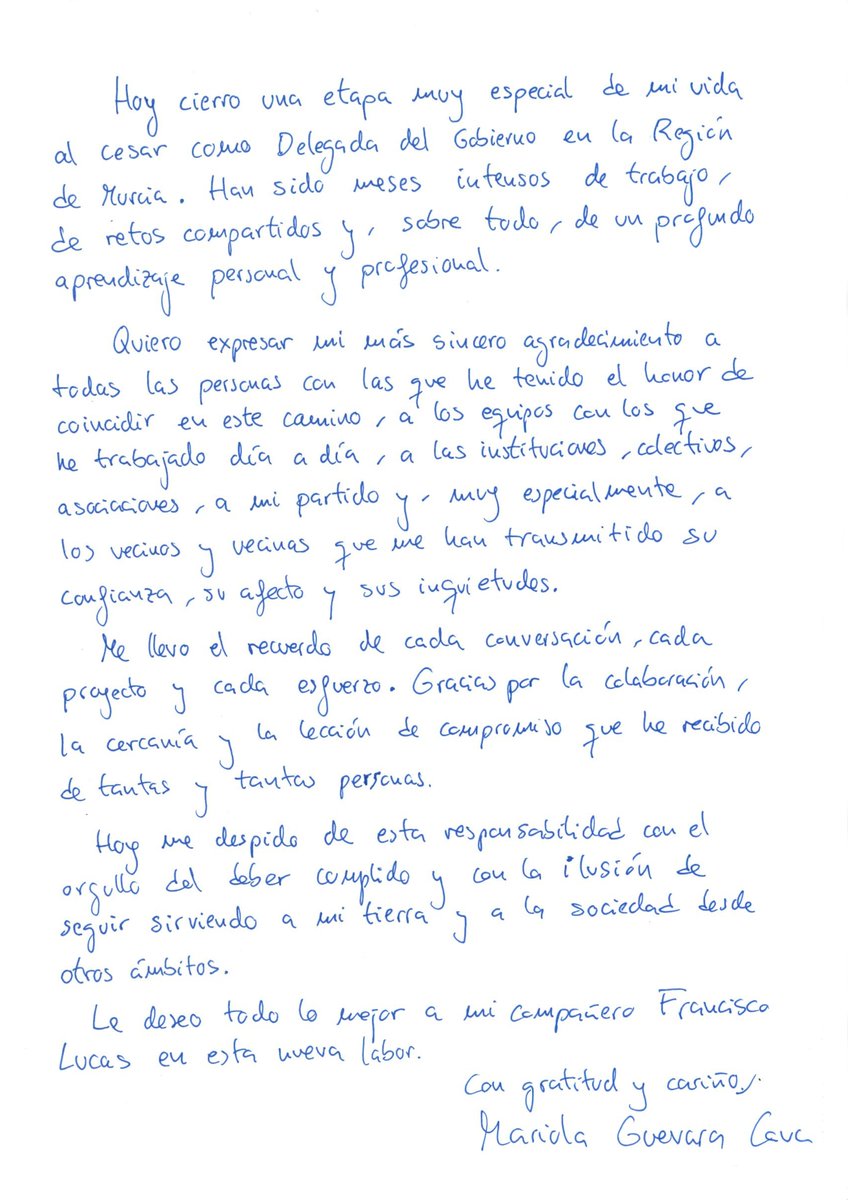 Hoy cierro una etapa muy especial de mi vida
al cesar como Delegada del Gobierno en la Región
de Murcia. Han sido meses intensos de trabajo,
de retos compartidos y, sobre todo, de un profundo
aprendizaje personal y profesional.
Quiero expresar mi más sincero agradecimiento a
todas las personas con las que he tenido el honor de
coincidir en este camino, a los equipos con los que
he trabajado día a día, a las instituciones, colectivos,
asociaciones, a mi partido y, muy especialmente, a
los vecinos y vecinas que me han transmitido su
confianza, su afecto y sus inquietudes.
Me llevo el recuerdo de cada conversación, cada
proyecto y cada esfuerzo. Gracias por la colaboración,
la cercanía y la lección de compromiso que he recibido
de tantas y tantas personas.
Hoy me despido de esta responsabilidad con el
orgullo del deber cumplido y con la ilusión de
seguir sirviendo a mi tierra y a la sociedad desde
otros ámbitos.
Le deseo todo lo mejor a mi compañero Francisco
Lucas en esta nueva labor.
Con gratitud y cariño,
Mariola Guevara Cava